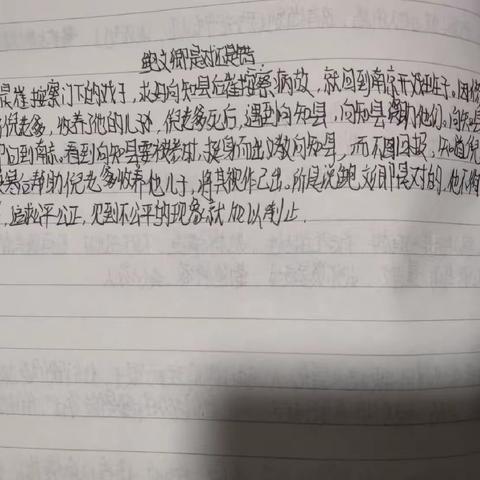 鲍文卿是对还是错
是崔按察门下的戏子,求好向知县后崔按察病故,就回到南京开戏班子。因
倪老爹,收养了他的儿子,倪老爹死后,遇到向知县,向知县帮助他们。向知县
回到南京,看到向知县要被参时,挺身而出以救向知县,而不图回报。知道倪
是应帮助倪老爹收养他儿子,将其视作己出。所以说鲍文卿是对的,他不
,追求公平公正,见到不公平的现象就加以制止.